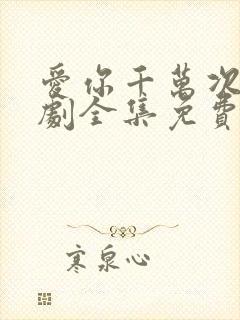 愛你千萬次
劇全集免費
寒泉心